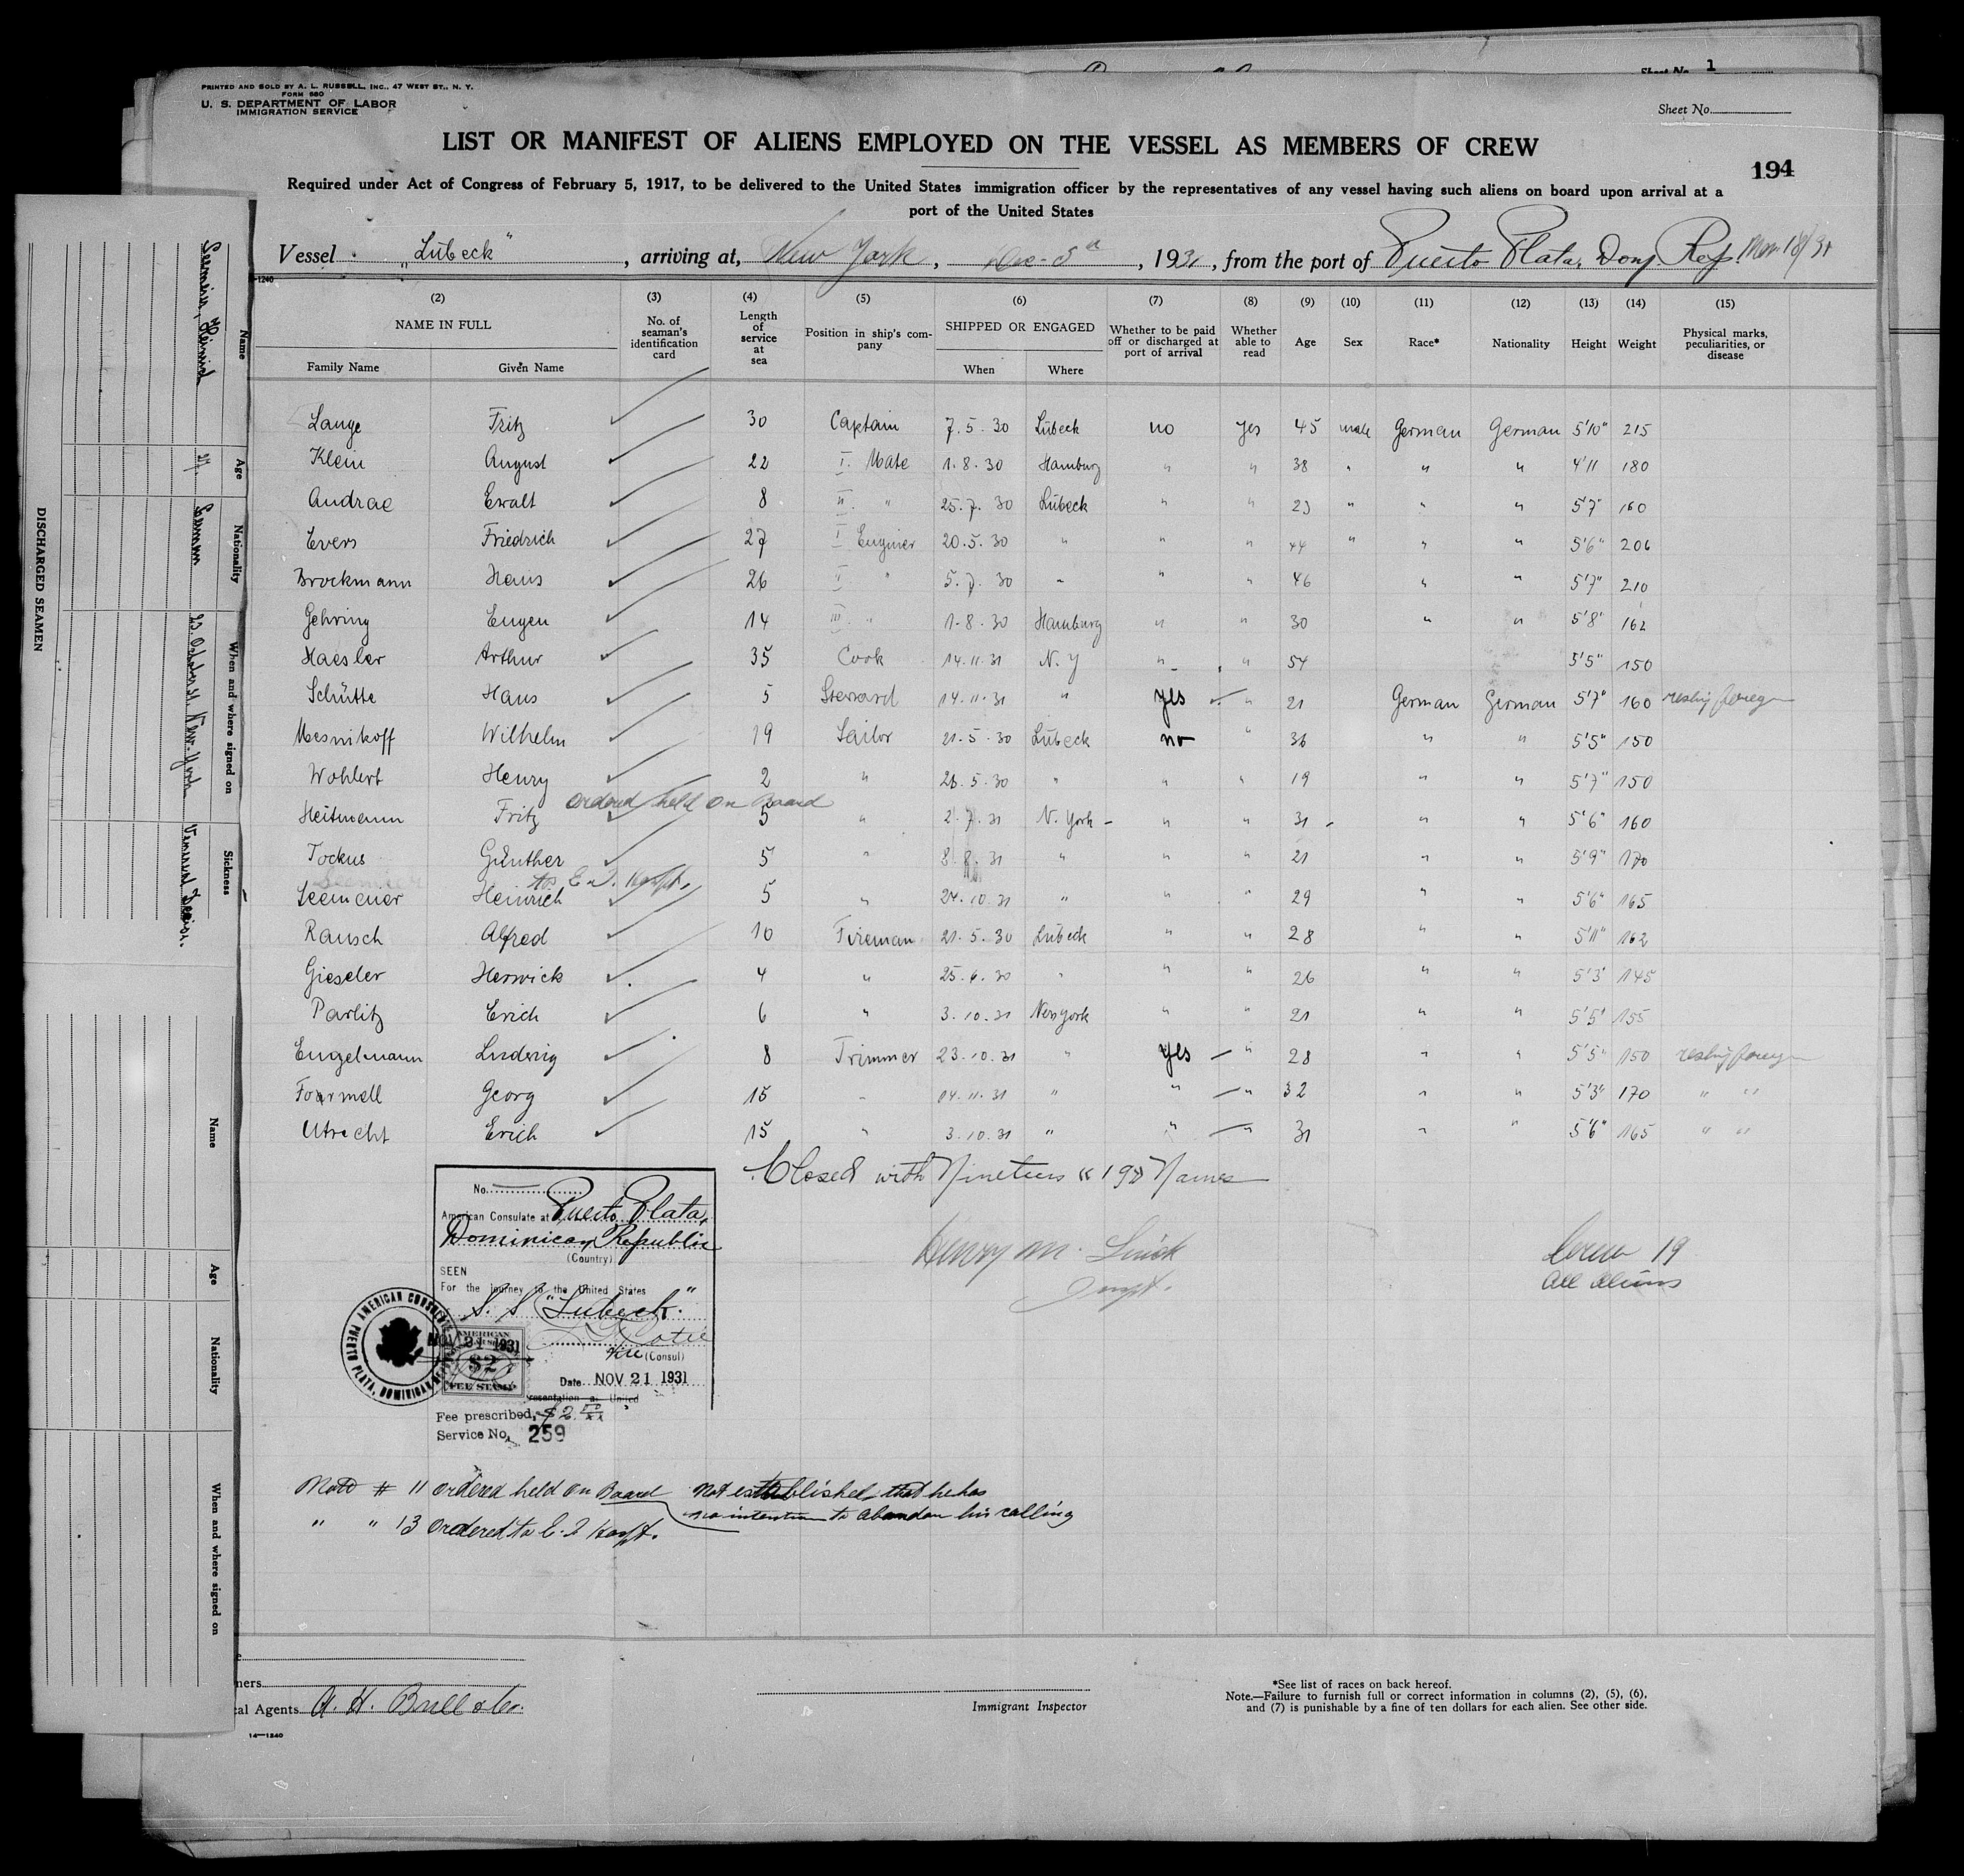 Sheet No. 1
PRINTED AND SOLD BY A. L. RUSSELL, INC., 47 WEST ST., N. Y.
FORM 680
U. S. DEPARTMENT OF LABOR
IMMIGRATION SERVICE
Sheet No.
LIST OR MANIFEST OF ALIENS EMPLOYED ON THE VESSEL AS MEMBERS OF CREW
194
Required under Act of Congress of February 5, 1917, to be delivered to the United States immigration officer by the representatives of any vessel having such aliens on board upon arrival at a
port of the United States
Vessel "Lübeck", arriving at, New York, Dec. 5th, 1931, from the port of Puerto Plata, Dom. Rep.
(2) (3) (4) (5) (6) (7) (8) (9) (10) (11) (12) (13) (14) (15)
NAME IN FULL No. of seaman's identification card Length of service at sea Position in ship's company SHIPPED OR ENGAGED Whether to be paid off or discharged at port of arrival Whether able to read Age Sex Race* Nationality Height Weight Physical marks, peculiarities, or disease
Family Name Given Name When Where
Lange Fritz 30 Captain 7.5.30 Lübeck no yes 45 male German German 5'10" 215
Klein August 22 I. Mate 1.8.30 Hamburg " " 38 " " " 4'11 180
Andrae Ewalt 8 II. " 25.7.30 Lübeck " " 23 " " " 5'7" 160
Evers Friedrich 27 I Enginier 20.5.30 " " " 44 " " " 5'6" 206
Brockmann Hans 26 I. " 5.7.30 " " " 46 " " 5'7" 210
Gehring Eugen 14 III. " 1.8.30 Hamburg " " 30 " " 5'8" 162
Haesler Arthur 35 Cook 14.11.31 N.Y " " 54 5'5" 150
Schütte Hans 5 Steward 14.11.31 " yes " 21 German German 5'7" 160
Mesnikoff Wilhelm 19 Sailor 21.5.30 Lübeck no " 36 " " 5'5" 150
Wohlert Henry 2 " 26.5.30 " " " 19 " " 5'7" 150
ordered held on board
Heitmann Fritz 5 " 2.7.31 N. York " " 31 " " 5'6" 160
Tockus Günther 5 " 8.8.31 " " " 21 " " 5'9" 170
to E.I. Hospt.
Seemeier Heinrich 5 " 24.10.31 " " " 29 " " 5'6" 165
Rausch Alfred 10 Fireman 21.5.30 Lübeck " " 28 " " 5'11" 162
Gieseler Herwick 4 " 25.6.30 " " " 26 " " 5'3' 145
Parlitz Erich 6 " 3.10.31 New York " " 21 " " 5'5' 155
Engelmann Ludwig 8 Trimmer 23.10.31 " yes " 28 " " 5'5" 150
Formell Georg 15 " 14.11.31 " " " 32 " " 5'3" 170 " "
Utrecht Erich 15 " 3.10.31 " " " 31 " " 5'6" 165 " "
Closed with Nineteen "19" Names
Henry M.
Inspt.
Crew 19
All aliens
No.
American Consulate at Puerto Plata,
Dominican Republic
(Country)
SEEN
For the journey to the United States
S. S. "Lubeck."
Vice (Consul)
Date NOV 21 1931
AMERICAN CONSULATE PUERTO PLATA, DOMINICAN REPUBLIC
NOV 21 1931
AMERICAN
$2
FEE STAMP
Fee prescribed, $2.
Service No. 259
Note # 11 ordered held on Board Not established that he has
no intention to abandon his calling
" " 13 Ordered to E. I Hospt.
Agents A. H. Bull & Co.
14—1240
Immigrant Inspector
*See list of races on back hereof.
Note.—Failure to furnish full or correct information in columns (2), (5), (6),
and (7) is punishable by a fine of ten dollars for each alien. See other side.
DISCHARGED SEAMEN
Name Age Nationality When and where signed on Sickness
Seemeier, Heinrich 29. German 23. October 31. New-York
Name Age Nationality When and where signed on